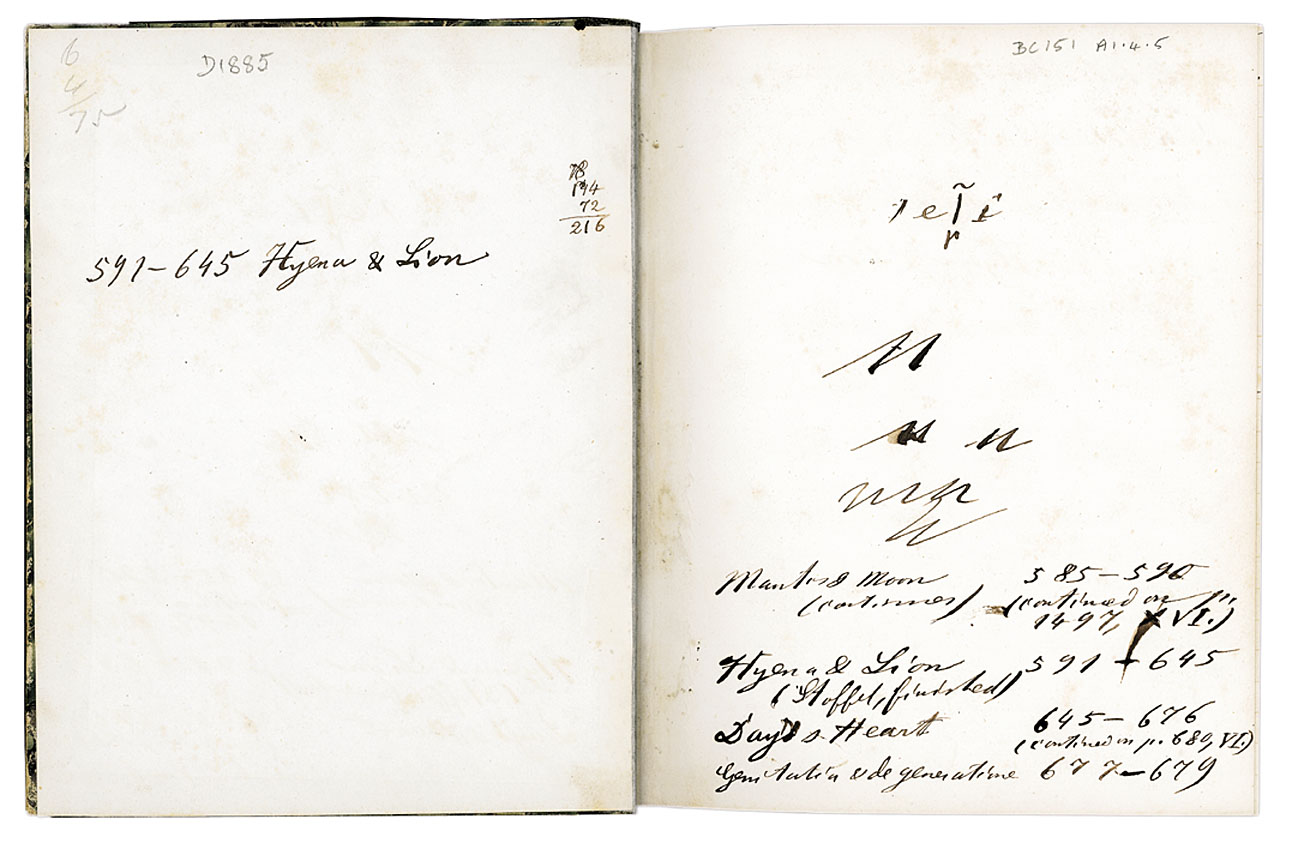 6
4
75
D1885
78
144
72
216
591–645 Hyena & Lion
BC151 A1.4.5
Mantis & Moon 585–590
(continues) (continued on p.
1497, XVI.)
Hyena & Lion 591–645
(Stoffel, finished)
Day's Heart 645–676
(continued on p. 680, VI.)
Genitalia & de generatione 677–679